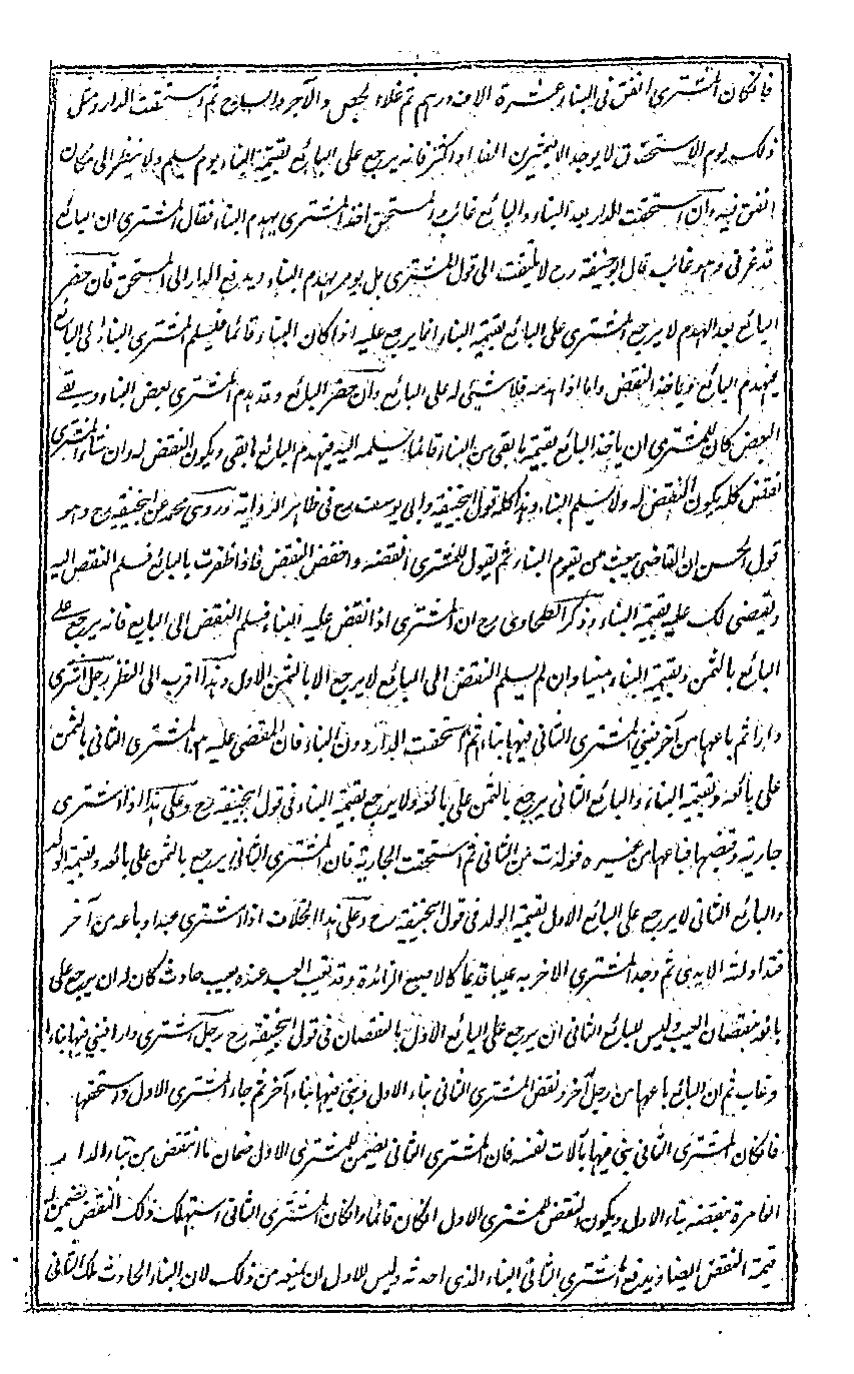 فان كان المشترى انفق فى البناء عشرة الاف درهم ثم غلا الجص والآجر والساج ثم استحقت الدار ومثل
ذلك يوم الاستحقاق لا يوجد الا بعشرين الفا او اكثر فانه يرجع على البائع بقيمة البناء يوم يسلم ولا ينظر الى ما كان
انفق فيه وان استحقت الدار بعد البناء والبائع غائب والمستحق اخذ المشترى بهدم البناء فقال المشترى ان البائع
قد غرنى وهو غائب قال ابو حنيفة رح لا يلتفت الى قول المشترى بل يومر بهدم البناء ويدفع الدار الى المستحق فان حضر
البائع بعد الهدم لا يرجع المشترى على البائع بقيمة البناء انما يرجع عليه اذا كان البناء قائما فيسلم المشترى البناء الى البائع
فيهدم البائع وياخذ النقض واما اذا هدمه فلا شيئ له على البائع وان حضر البائع وقد هدم المشترى بعض البناء وبقى
البعض كان للمشترى ان ياخذ البائع بقيمة ما بقى من البناء قائما يسلمه اليه فيهدم البائع ما بقى ويكون النقض له وان شاء المشترى
نقض كله يكون النقض له ولا يسلم البناء وهذا كله قول ابيحنيفة وابى يوسف رح فى ظاهر الرواية وروى محمد عن ابيحنيفة رح وهو
قول الحسن ان القاضى يبعث من يقوم البناء ثم يقول للمشترى انقضه واحفظ النقض فاذا ظفرت بالبائع فسلم النقض اليه
ويقضى لك عليه بقيمة البناء وذكر الطحاوى رح ان المشترى اذا نقض عليه البناء فسلم النقض الى البايع فانه يرجع على
البائع بالثمن وبقيمة البناء مبنيا وان لم يسلم النقض الى البائع لا يرجع الا بالثمن الاول وهذا اقرب الى النظر رجل اشترى
دارا ثم باعها من آخر فبنى المشترى الثانى فيها بناء ثم استحقت الدار دون البناء فان المقضى عليه هو المشترى الثانى بالثمن
على بائعه وبقيمة البناء والبائع الثانى يرجع بالثمن على بائعه ولا يرجع بقيمة البناء فى قول ابيحنيفة رح وعلى هذا اذا اشترى
جارية وقبضها فباعها من غيره فولدت من الثانى ثم استحقت الجارية فان المشترى الثانى يرجع بالثمن على بائعه وبقيمة الولد
والبائع الثانى لا يرجع على البائع الاول بقيمة الولد فى قول ابيحنيفة رح وعلى هذا الخلاف اذا اشترى عبدا وباعه من آخر
فتداولته الايدى ثم وجد المشترى الاخر به عيبا قديما كالاصبع الزائدة وقد تعيب العبد عنده بعيب حادث كان له ان يرجع على
بائعه بنقصان العيب وليس للبائع الثانى ان يرجع على البائع الاول بالنقصان فى قول ابيحنيفة رح رجل اشترى دارا فبنى فيها بناء
وغاب ثم ان البائع باعها من رجل آخر ونقض المشترى الثانى بناء الاول وبنى فيها بناء آخر ثم جاء المشترى الاول واستحقها
فان كان المشترى الثانى بنى فيها بآلات نفسه فان المشترى الثانى يضمن للمشترى الاول ضمان ما انتقض من بناء الدار
العامرة بنقضه بناء الاول ويكون النقض للمشترى الاول ان كان قائما وان كان المشترى الثانى استهلك ذلك النقض يضمن له
قيمة النقض ايضا ويرفع المشترى الثانى البناء الذى احدثه وليس للاول ان يمنعه من ذلك لان البناء الحادث ملك الثانى